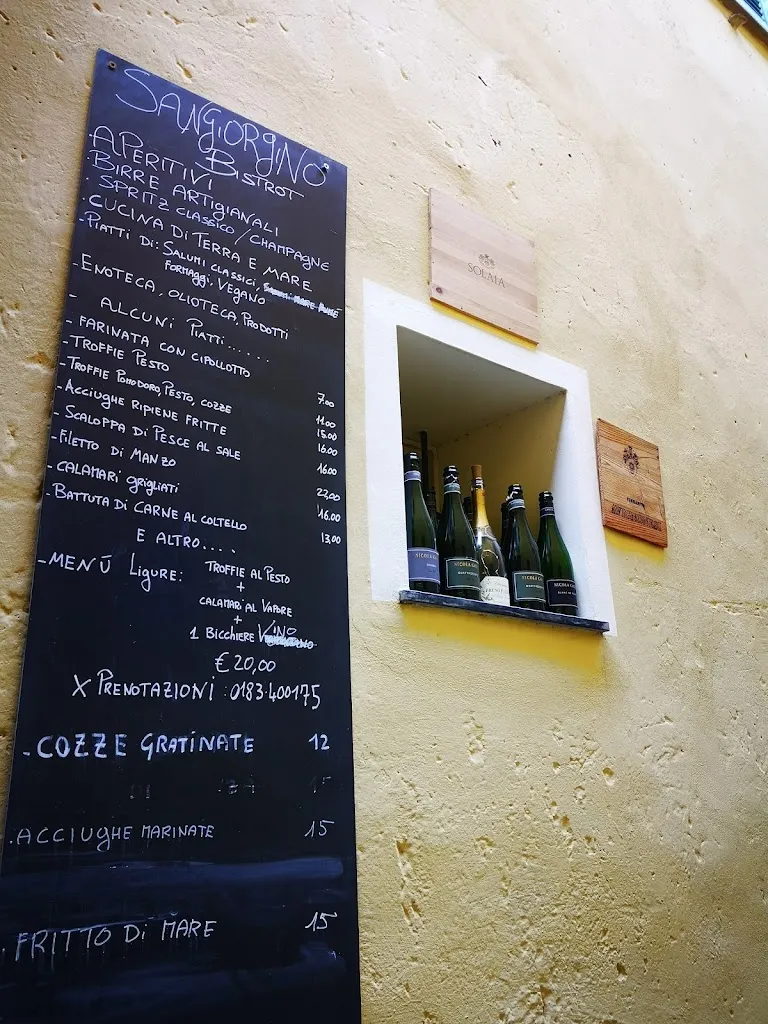 SANGIORGINO
BISTROT
APERITIVI
- BIRRE ARTIGIANALI
- SPRITZ CLASSICO / CHAMPAGNE
- CUCINA DI TERRA E MARE
- PIATTI DI: SALUMI CLASSICI,
FORMAGGI, VEGANO
- ENOTECA, OLIOTECA, PRODOTTI
- ALCUNI PIATTI......
- FARINATA CON CIPOLLOTTO 7.00
- TROFFIE PESTO 11.00
- TROFFIE POMODORO, PESTO, COZZE 15.00
- ACCIUGHE RIPIENE FRITTE 16.00
- SCALOPPA DI PESCE AL SALE 16.00
- FILETTO DI MANZO 22,00
- CALAMARI GRIGLIATI 16.00
- BATTUTA DI CARNE AL COLTELLO 13.00
E ALTRO....
- MENÚ LIGURE: TROFFIE AL PESTO
+
CALAMARI AL VAPORE
+
1 BICCHIERE VINO
€ 20,00
X PRENOTAZIONI : 0183.400175
- COZZE GRATINATE 12
. ACCIUGHE MARINATE 15
. FRITTO DI MARE 15
SOLAIA
NICOLA
NICOLA
NICOLA
NICOLA